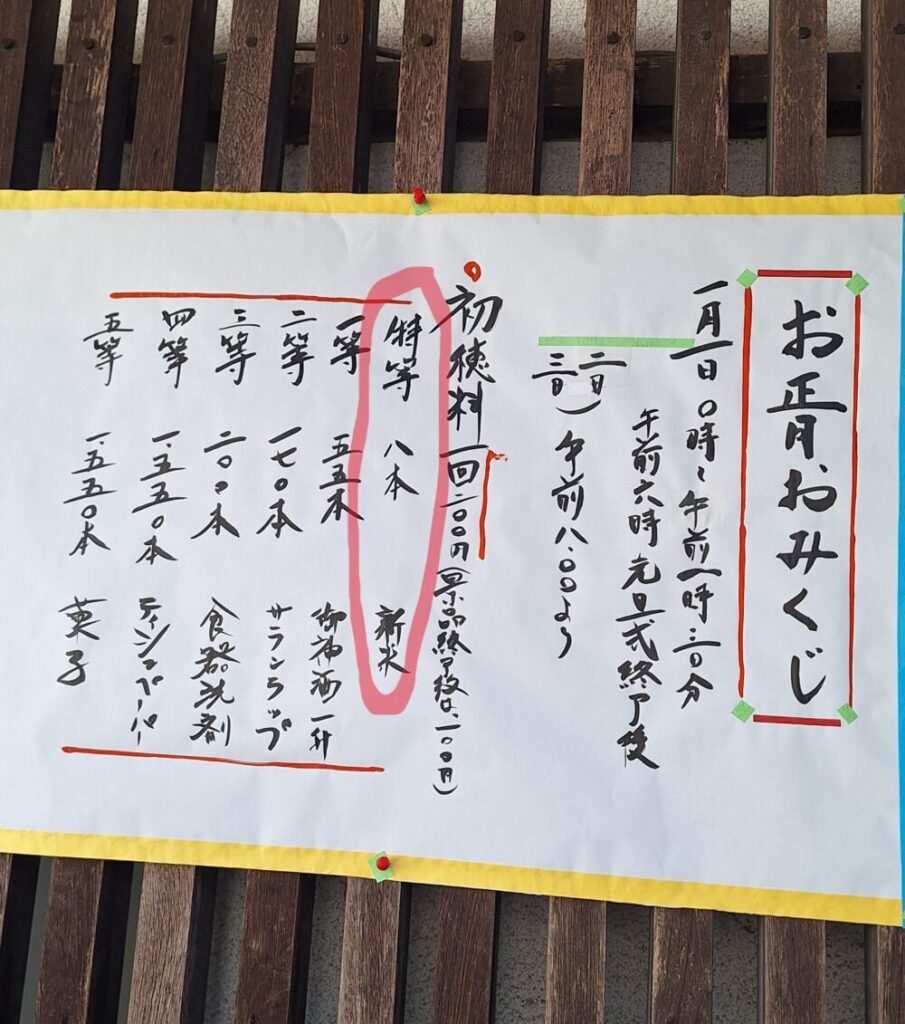 お正月おみくじ
一月一日 〇時〜午前一時三〇分
午前六時 元旦式終了後
二日
三日
) 午前八.〇〇より
初穂料 一回 二〇〇円(景品終了後は、一〇〇円)
特等 八本 新米
一等 五五本 御神酒一升
二等 一七〇本 サランラップ
三等 二〇〇本 食器洗剤
四等 一.五五〇本 ティシュペーパー
五等 一.五五〇本 菓子